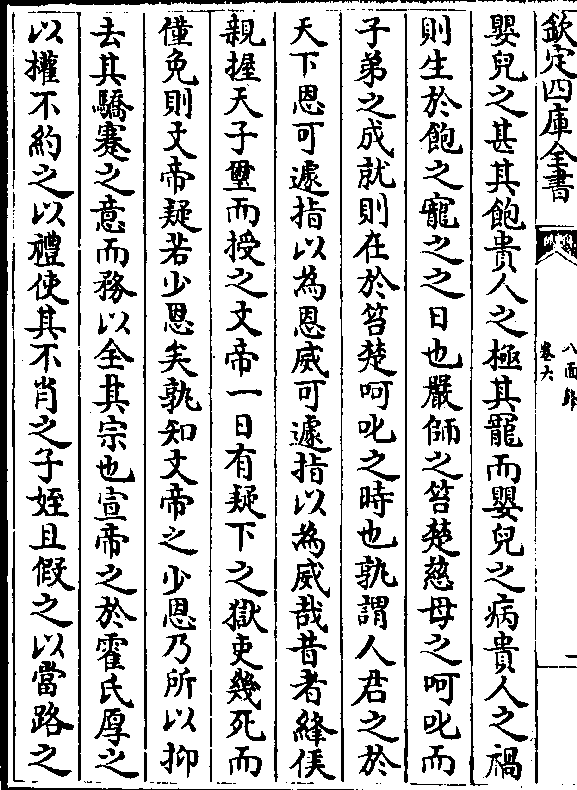 欽定四庫全書
八面鋒
卷六
嬰兒之甚其飽貴人之極其寵而嬰兒之病貴人之禍
則生於飽之寵之之日也嚴師之笞楚慈母之呵叱而
子弟之成就則在於笞楚呵叱之時也孰謂人君之於
天下恩可遽指以為恩威可遽指以為威哉昔者絳侯
親握天子璽而授之文帝一日有疑下之獄吏幾死而
僅免則文帝疑若少恩矣孰知文帝之少恩乃所以抑
去其驕蹇之意而務以全其宗也宣帝之於霍氏厚之
以權不約之以禮使其不肖之子姪且假之以當路之